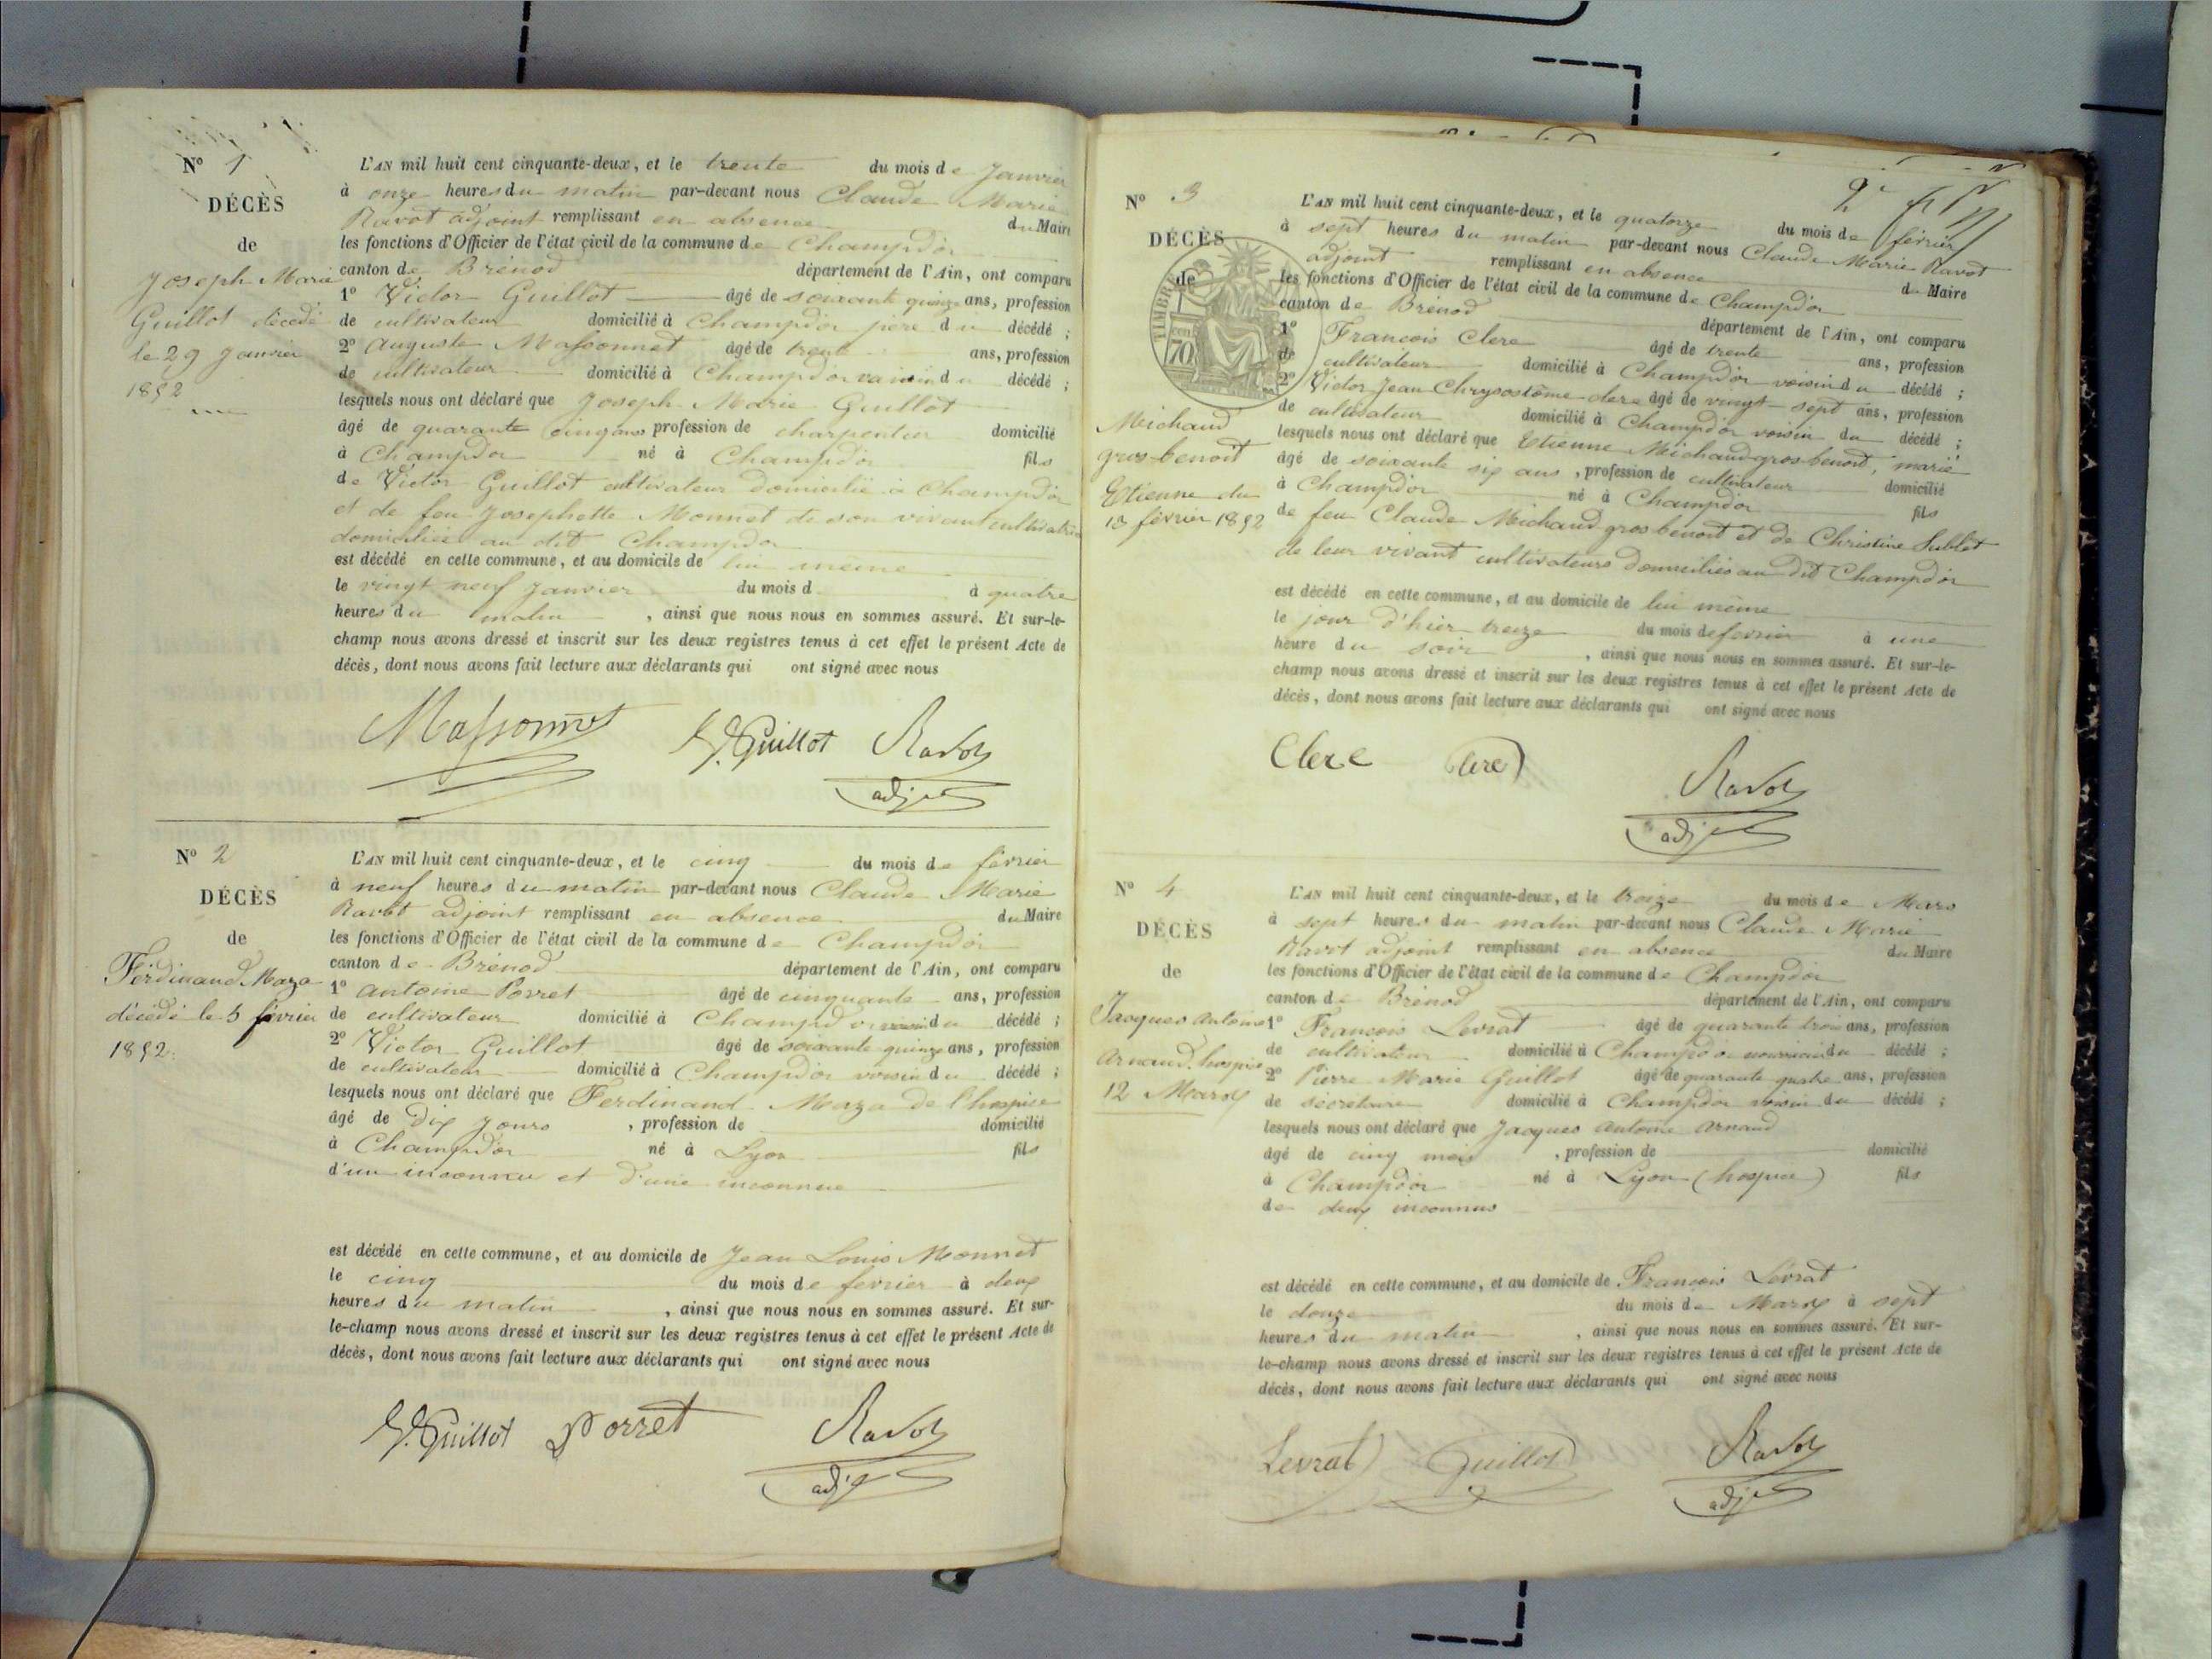 N° 1
DÉCÈS
de
Joseph Marie
Guillot décédé
le 29 Janvier
1852
L'AN mil huit cent cinquante-deux, et le trente du mois de Janvier
à onze heures du matin par-devant nous Claude Marie
Ravot adjoint remplissant en absence du Maire
les fonctions d'Officier de l'état civil de la commune de Champdor
canton de Brénod département de l'Ain, ont comparu
1° Victor Guillot âgé de soixante quinze ans, profession
de cultivateur domicilié à Champdor père du décédé ;
2° Auguste Massonnet âgé de trente ans, profession
de cultivateur domicilié à Champdor voisin du décédé ;
lesquels nous ont déclaré que Joseph Marie Guillot
âgé de quarante cinq ans profession de charpentier domicilié
à Champdor né à Champdor fils
de Victor Guillot cultivateur domicilié à Champdor
et de feu Josephette Monnet de son vivant cultivatrice
domiciliée au dit Champdor
est décédé en cette commune, et au domicile de lui même
le vingt neuf Janvier du mois d à quatre
heures du matin , ainsi que nous nous en sommes assuré. Et sur-le-
champ nous avons dressé et inscrit sur les deux registres tenus à cet effet le présent Acte de
décès, dont nous avons fait lecture aux déclarants qui ont signé avec nous
Massonnet Guillot Ravot
adj
N° 2
DÉCÈS
de
Ferdinand Maza
décédé le 5 février
1852.
L'AN mil huit cent cinquante-deux, et le cinq du mois de février
à neuf heures du matin par-devant nous Claude Marie
Ravot adjoint remplissant en absence du Maire
les fonctions d'Officier de l'état civil de la commune de Champdor
canton de Brénod département de l'Ain, ont comparu
1° Antoine Porret âgé de cinquante ans, profession
de cultivateur domicilié à Champdor voisin du décédé ;
2° Victor Guillot âgé de soixante quinze ans, profession
de cultivateur domicilié à Champdor voisin du décédé ;
lesquels nous ont déclaré que Ferdinand Maza de l'hospice
âgé de dix jours , profession de domicilié
à Champdor né à Lyon fils
d'un inconnu et d'une inconnue
est décédé en cette commune, et au domicile de Jean Louis Monnet
le cinq du mois de fevrier à deux
heures du matin , ainsi que nous nous en sommes assuré. Et sur-
le-champ nous avons dressé et inscrit sur les deux registres tenus à cet effet le présent Acte de
décès, dont nous avons fait lecture aux déclarants qui ont signé avec nous
Guillot Porret Ravot
adj
N° 3
DÉCÈS
de
TIMBRE
70
Michaud
gros benoit
Etienne du
13 février 1852
L'AN mil huit cent cinquante-deux, et le quatorze du mois de février
à sept heures du matin par-devant nous Claude Marie Ravot
adjoint remplissant en absence du Maire
les fonctions d'Officier de l'état civil de la commune de Champdor
canton de Brénod département de l'Ain, ont comparu
1° François Clerc âgé de trente ans, profession
de cultivateur domicilié à Champdor voisin du décédé ;
2° Victor Jean Chrysostôme clerc âgé de vingt-sept ans, profession
de cultivateur domicilié à Champdor voisin du décédé ;
lesquels nous ont déclaré que Etienne Michaud gros benoit, marié
âgé de soixante six ans , profession de cultivateur domicilié
à Champdor né à Champdor fils
de feu Claude Michaud gros benoit et de Christine Sublet
de leur vivant cultivateurs domiciliés au dit Champdor
est décédé en cette commune, et au domicile de lui même
le jour d'hier treize du mois de fevrier à une
heure du soir , ainsi que nous nous en sommes assuré. Et sur-le-
champ nous avons dressé et inscrit sur les deux registres tenus à cet effet le présent Acte de
décès, dont nous avons fait lecture aux déclarants qui ont signé avec nous
Clerc Clerc Ravot
adj
N° 4
DÉCÈS
de
Jacques Antoine
Arnaud. hospice
12 Mars
L'AN mil huit cent cinquante-deux, et le treize du mois de Mars
à sept heures du matin par-devant nous Claude Marie
Ravot adjoint remplissant en absence du Maire
les fonctions d'Officier de l'état civil de la commune de Champdor
canton de Brénod département de l'Ain, ont comparu
1° François Levrat âgé de quarante trois ans, profession
de cultivateur domicilié à Champdor nourricier du décédé ;
2° Pierre Marie Guillot âgé de quarante quatre ans, profession
de sécretaire domicilié à Champdor voisin du décédé ;
lesquels nous ont déclaré que Jacques Antoine Arnaud
âgé de cinq mois , profession de domicilié
à Champdor né à Lyon (hospice) fils
de deux inconnus
est décédé en cette commune, et au domicile de François Levrat
le douze du mois de Mars à sept
heures du matin , ainsi que nous nous en sommes assuré. Et sur-
le-champ nous avons dressé et inscrit sur les deux registres tenus à cet effet le présent Acte de
décès, dont nous avons fait lecture aux déclarants qui ont signé avec nous
Levrat Guillot Ravot
adj